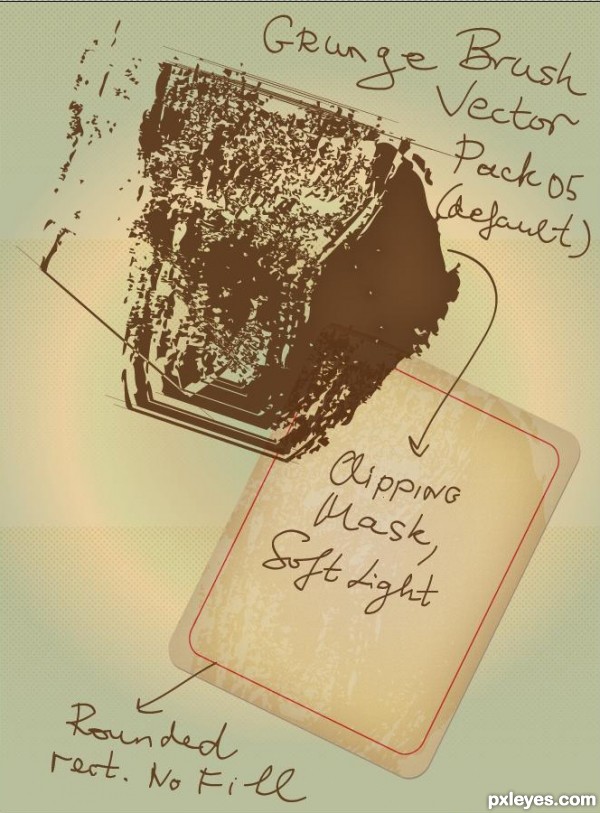 Grunge Brush
Vector
Pack 05
(default)
Clipping
Mask,
Soft Light
Rounded
rect. No Fill
pxleyes.com